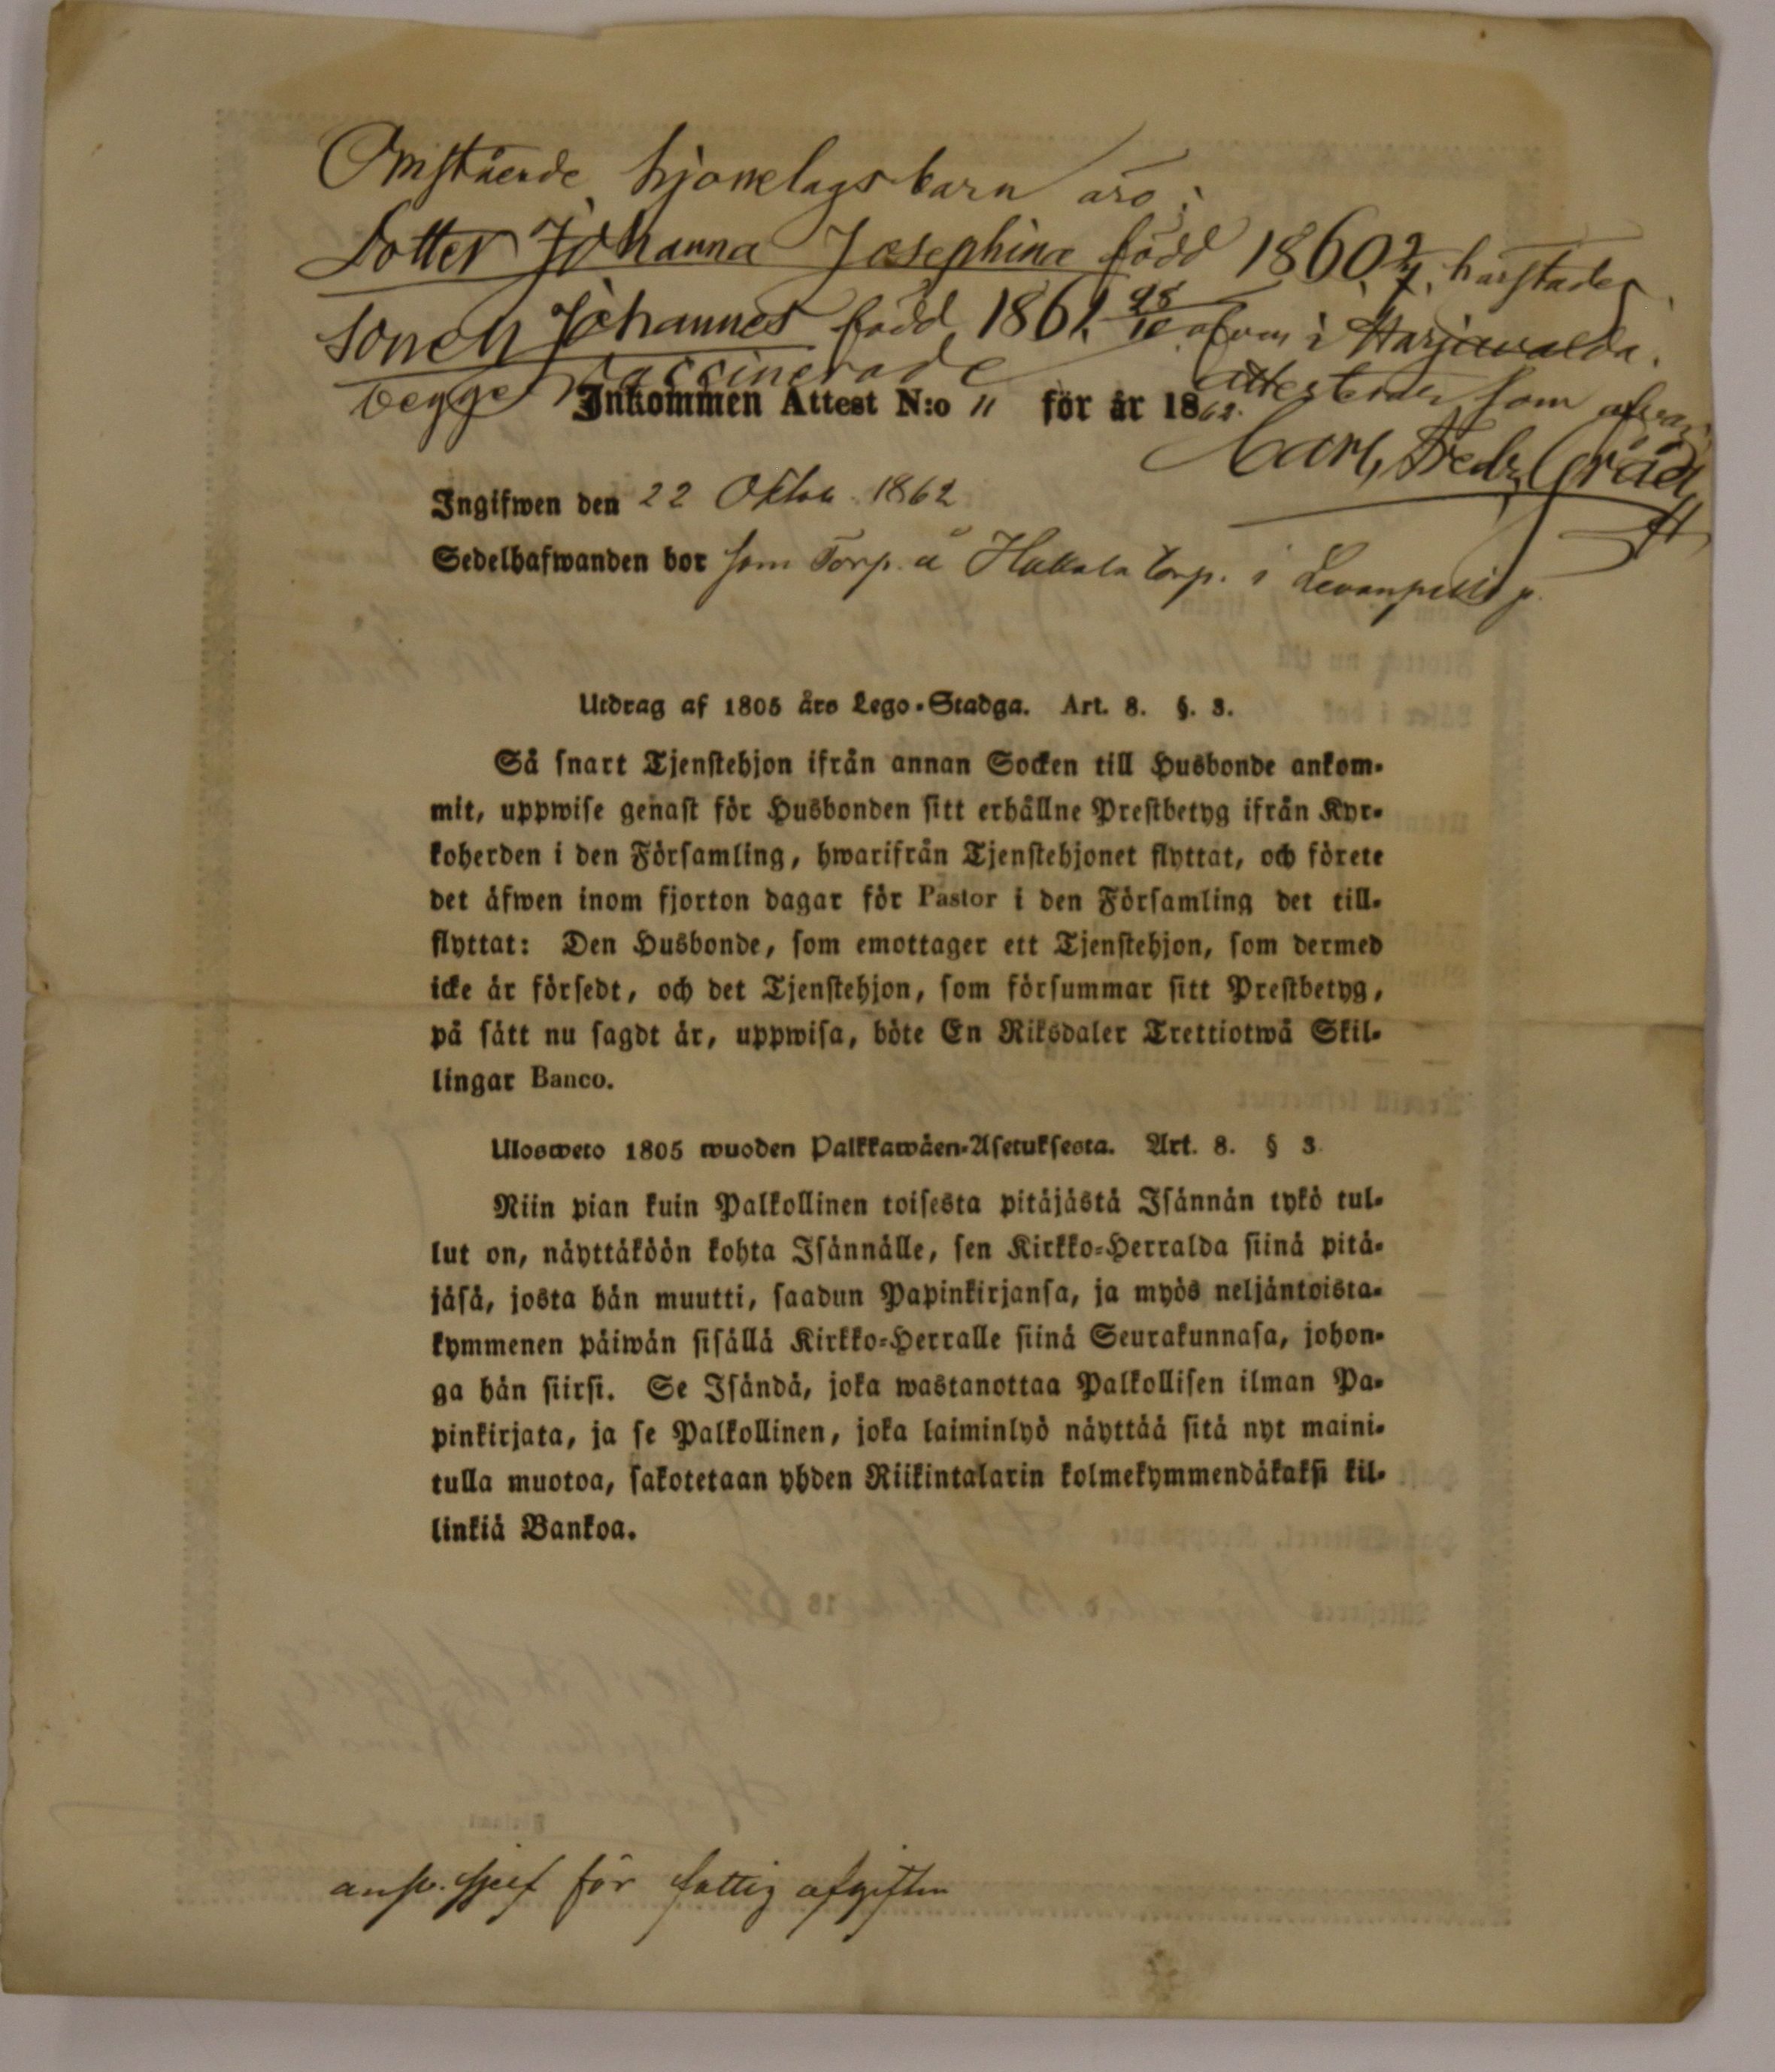 Omstående hjonelagsbarn äro:
Dotter Johanna Josephina född 1860 2/7. härstädes
sonen Johannes född 1861 i Harjawalda.
begge vaccinerade attesterar som ofvan
Carl Fredr. Gräd
Inkommen Attest N:o 11 för år 1862.
Ingifwen den 22 Oktob. 1862
Sedelhafwanden bor som Torp. å Torp. i
Utdrag af 1805 års Lego-Stadga. Art. 8. §. 3.
Så snart Tjenstehjon ifrån annan Socken till Husbonde ankom-
mit, uppwise genast för Husbonden sitt erhållne Prestbetyg ifrån Kyr-
koherden i den Församling, hwarifrån Tjenstehjonet flyttat, och förete
det äfwen inom fjorton dagar för Pastor i den Församling det till-
flyttat: Den Husbonde, som emottager ett Tjenstehjon, som dermed
icke är försedt, och det Tjenstehjon, som försummar sitt Prestbetyg,
på sätt nu sagdt är, uppwisa, böte En Riksdaler Trettiotwå Skil-
lingar Banco.
Ulosweto 1805 wuoden Palkkawäen-Asetuksesta. Art. 8. § 3.
Niin pian kuin Palkollinen toisesta pitäjästä Isännän tykö tul-
lut on, näyttäköön kohta Isännälle, sen Kirkko-Herralda siinä pitä-
jäsä, josta hän muutti, saadun Papinkirjansa, ja myös neljäntoista-
kymmenen päiwän sisällä Kirkko-Herralle siinä Seurakunnasa, johon-
ga hän siirsi. Se Isändä, joka wastanottaa Palkollisen ilman Pa-
pinkirjata, ja se Palkollinen, joka laiminlyö näyttää sitä nyt maini-
tulla muotoa, sakotetaan yhden Riikintalarin kolmekymmendäkaksi kil-
linkiä Bankoa.
ansv. sjelf för fattig afgiften